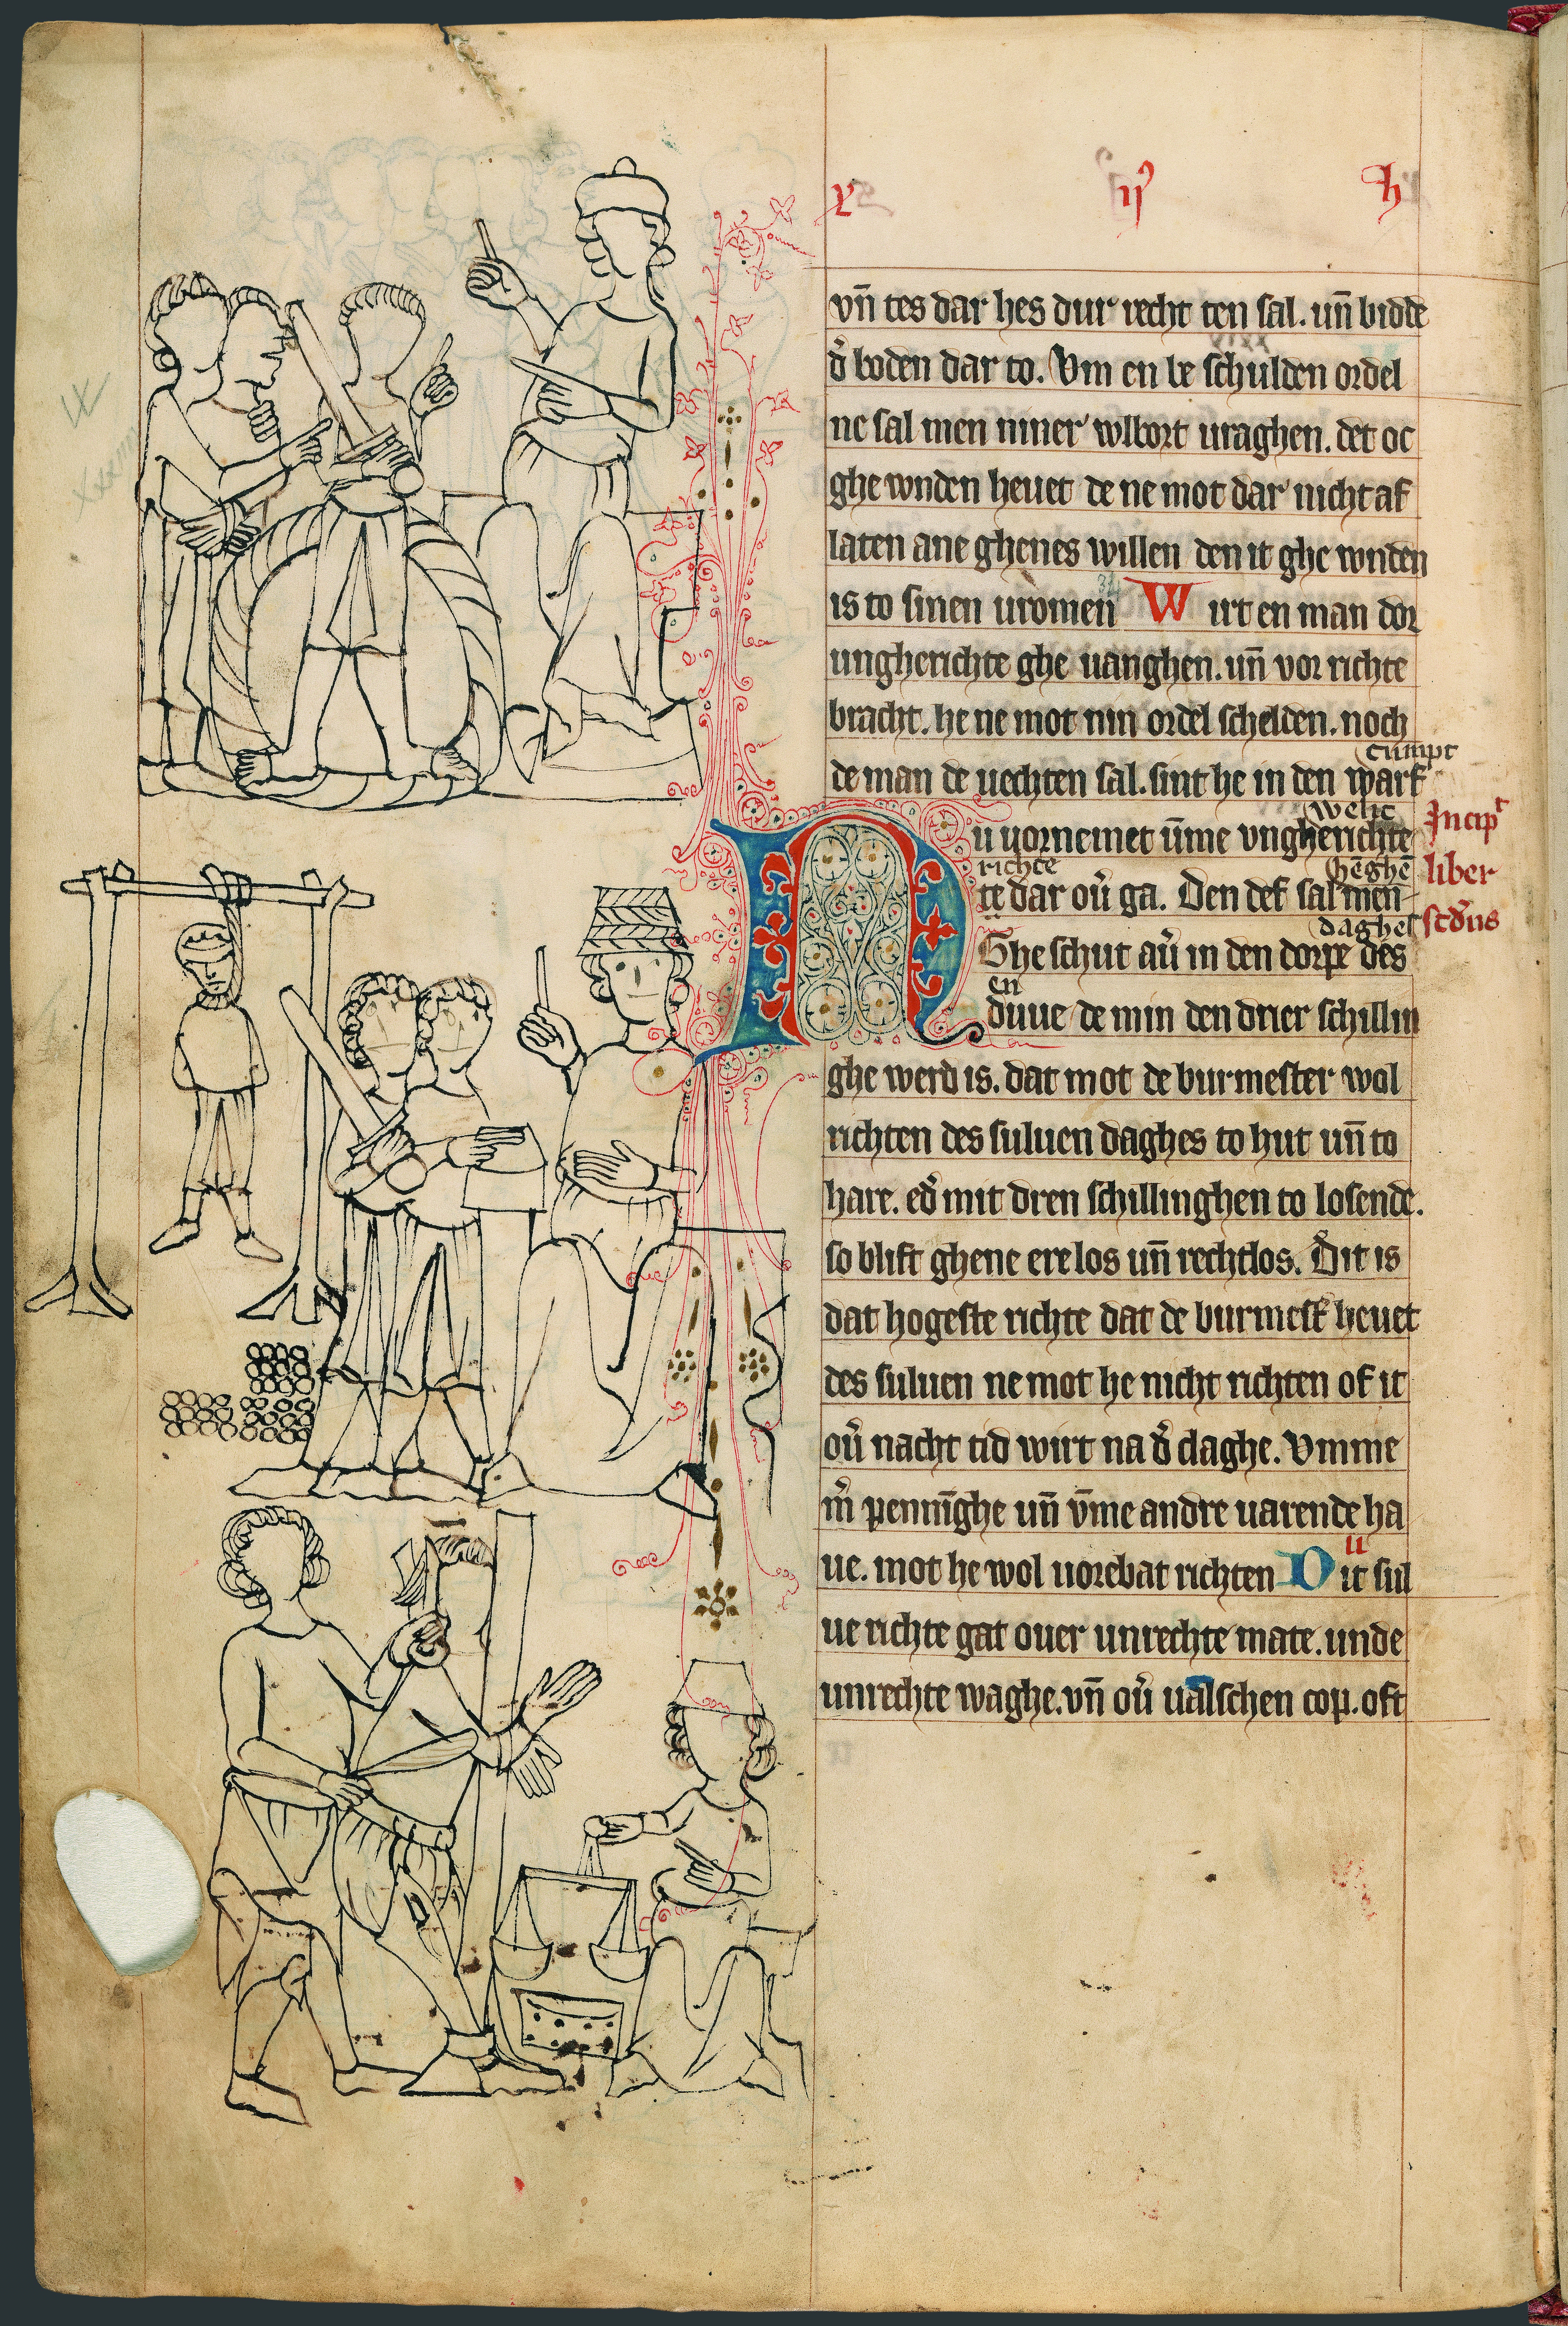 vn̄ tes dar hes dur recht ten sal. un̄ bidde
d̾ boden dar to. Vm en be schulden ordel
ne sal men niner wlbort uraghen. det oc
ghe wnden heuet de ne mot dar nicht af
laten ane ghenes willen den it ghe wnden
is to sinen uromen W irt en man dor
ungherichte ghe uanghen. un̄ vor richte
bracht. he ne mot nin ordel schelden. noch
de man de uechten sal. sint he in den warf
cumpt
N u uornemet um̄e vngherichte
welic
Incip̄t
richte
te dar ou̾ ga. Den def sal men
hēghē
liber
Ghe schut au̾ in den dorpe des
daghes
scd̾us
en
duue de min den drier schillin
ghe werd is. dat mot de burmester wol
richten des suluen daghes to hut un̄ to
hare. ed̾ mit dren schillinghen to losende.
so blift ghene ere los un̄ rechtlos. Dit is
dat hogeste richte dat de burmest̾ heuet
des suluen ne mot he nicht richten of it
ou̾ nacht tid wirt na d̾ claghe. Vmme
m̾ penni̅ghe un̄ vm̄e andre uarende ha
ue. mot he wol uorebat richten D it sul
ue richte gat ouer unrechte mate. unde
unrechte waghe. vn̄ ou̾ ualschen cop. oft